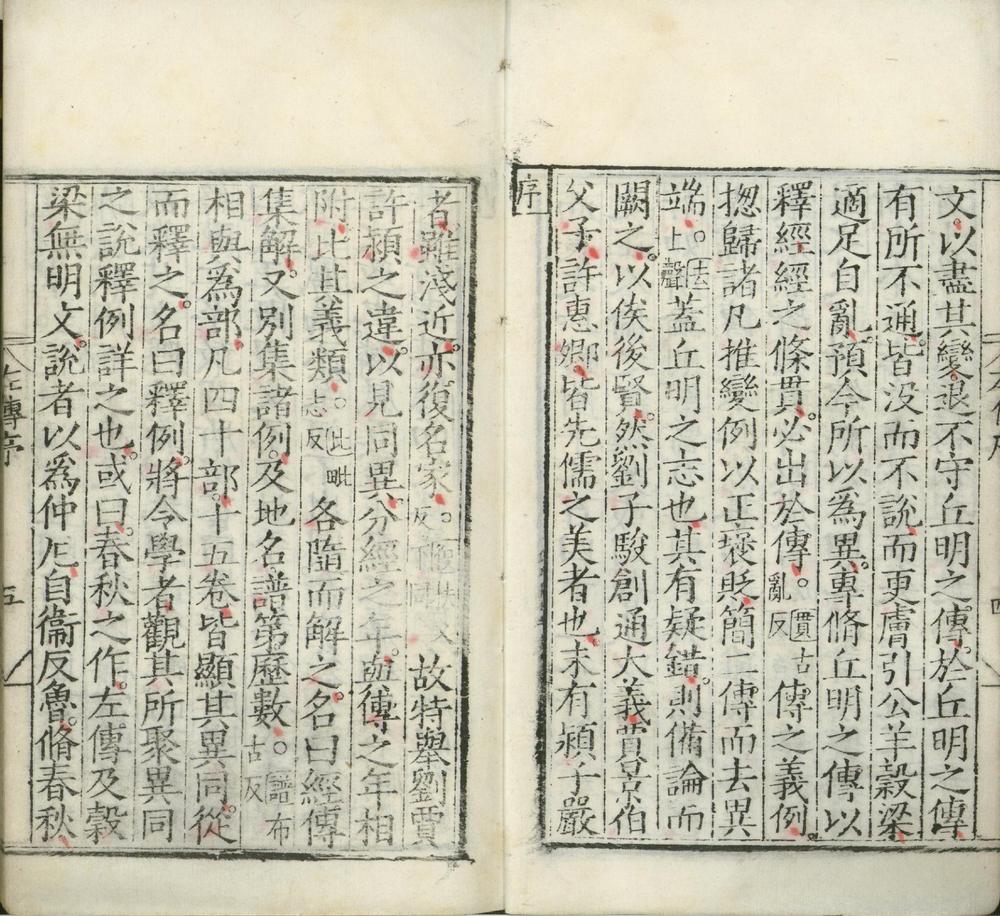 文以盡其變退不守丘明之傳於丘明之傳
有所不通皆没而不說而更膚引公羊穀梁
適足自亂預今所以為異專脩丘明之傳以
釋經經之條貫必出於傳。貫古亂反傳之義例
揔歸諸凡推變例以正襃貶簡二傳而去異
端。去上聲蓋丘明之志也其有疑錯則備論而
闕之以俟後賢然劉子駿創通大義賈景伯
父子許惠卿皆先儒之美者也末有潁子嚴
序
者雖淺近亦復名家。故特舉劉賈
許潁之違以見同異分經之年與傳之年相
附比其義類。比毗志反各隨而解之名曰經傳
集解又別集諸例及地名譜第歷數。譜布古反
相與為部凡四十部十五卷皆顯其異同從
而釋之名曰釋例將令學者觀其所聚異同
之說釋例詳之也或曰春秋之作左傳及穀
梁無明文說者以爲仲尼自衞反魯脩春秋
五